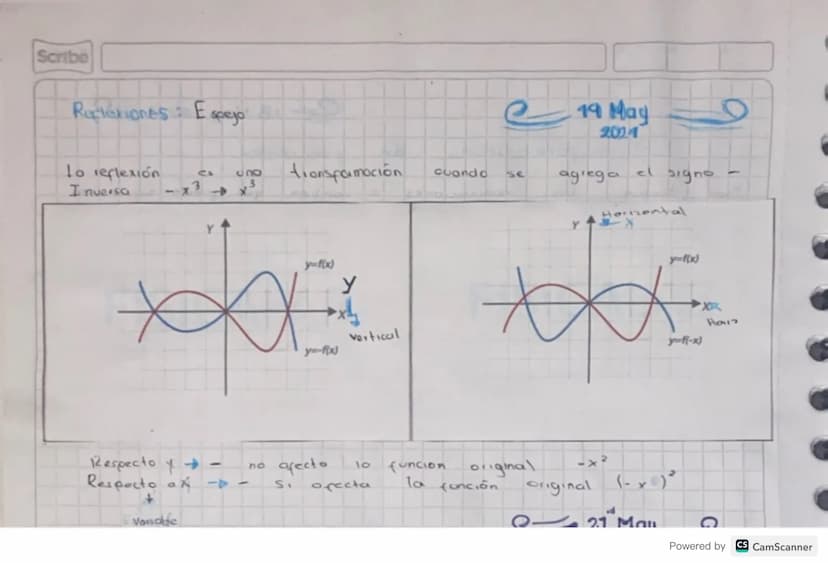 Scribe
Reflexiones: Espejo
19 May
2021
La reflexión es una transformación cuando se agrega el signo -
Inversa -x³ → x³
Y
y=f(x)
Y
X
vertical
y=-f(x)
Horizontal
Y x
y=f(x)
X
y=f(-x)
Respecto y → - no afecta la función original -x²
Respecto a x → - si afecta la función original (-x)²
Variable
21 May
Powered by CS CamScanner